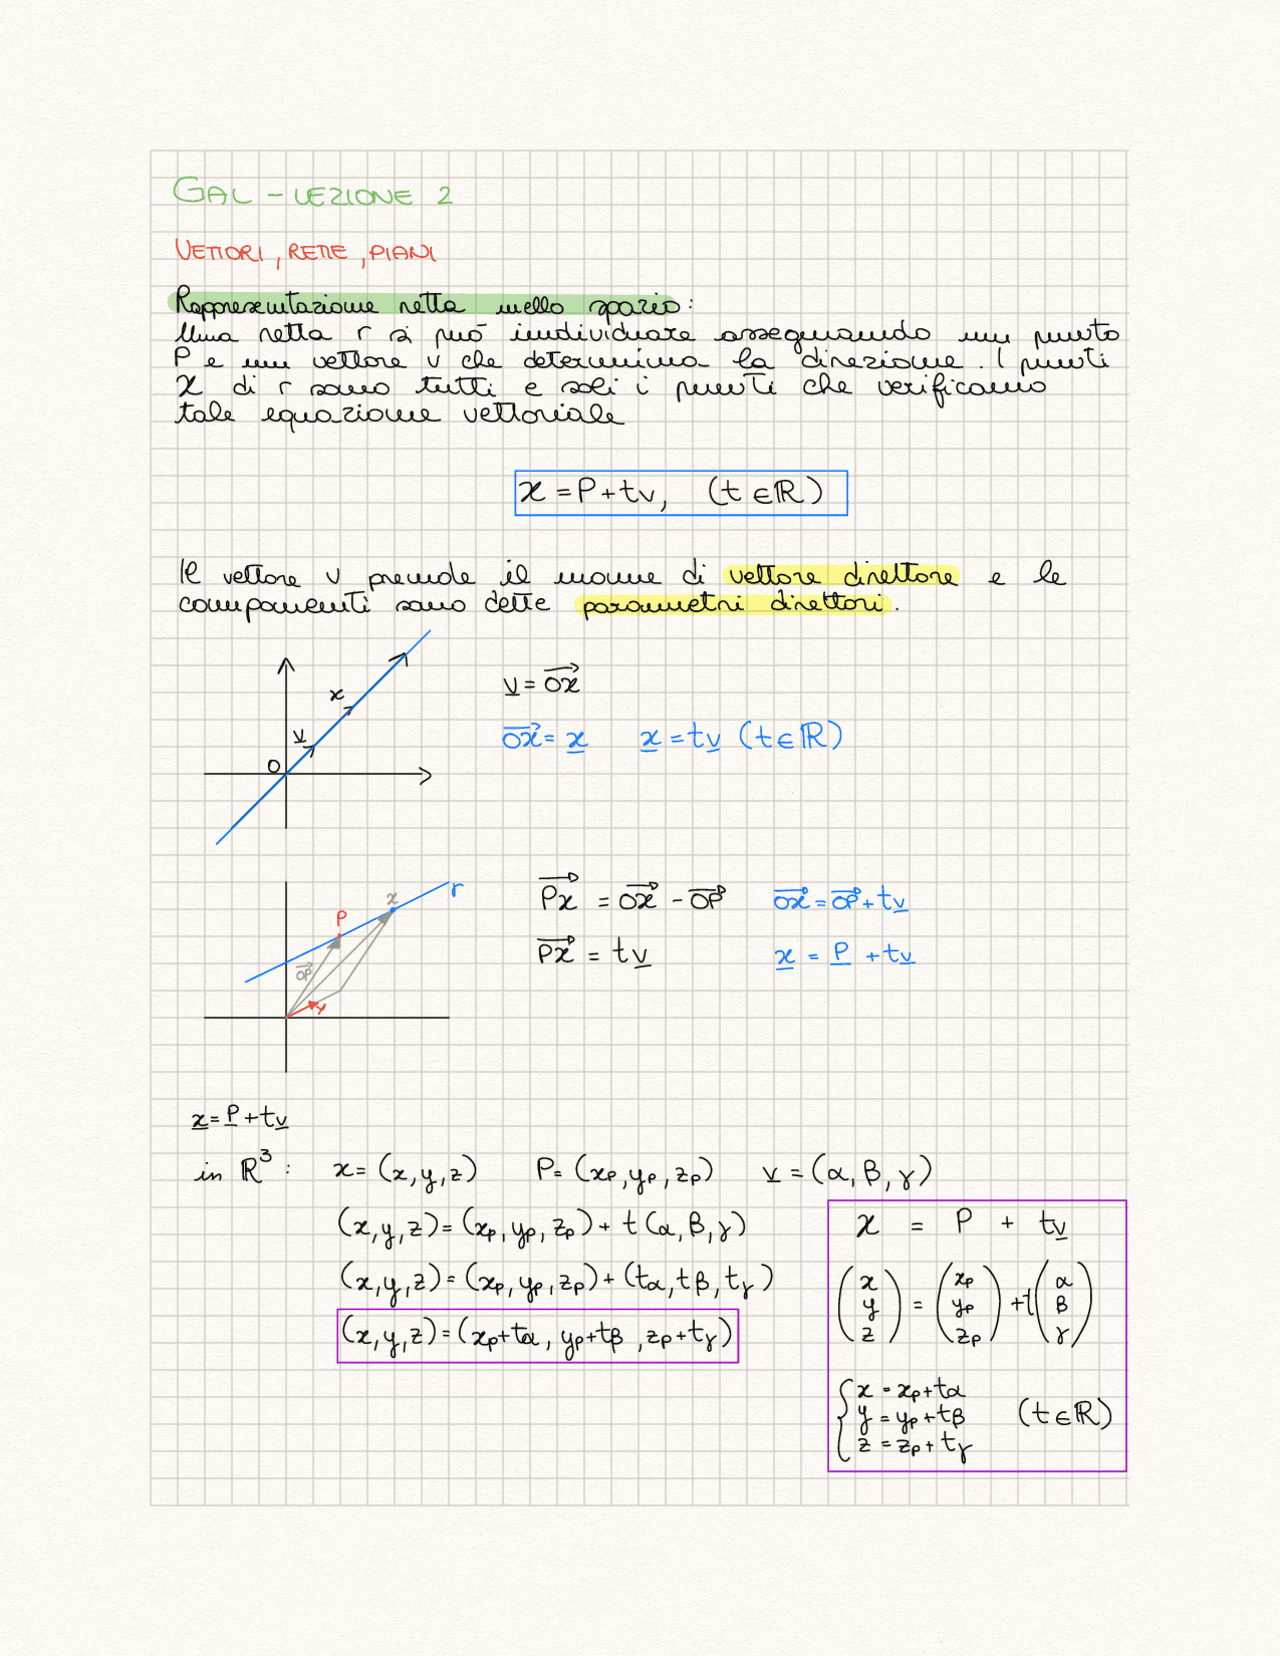 GAL - LEZIONE 2
VETTORI, RETTE, PIANI
Rappresentazione retta nello spazio:
Una retta r si può individuare assegnando un punto
P e un vettore v che determina la direzione. I punti
x di r sono tutti e soli i punti che verificano
tale equazione vettoriale
x = P + tv, (t ∈ ℝ)
Il vettore v prende il nome di vettore direttore e le
componenti sono dette parametri direttori.
x
v
O
v̲ = \overrightarrow{Ox}
\overrightarrow{Ox} = x̲ x̲ = tv̲ (t ∈ ℝ)
r
x
P
\overrightarrow{OP}
v
\overrightarrow{Px} = \overrightarrow{Ox} - \overrightarrow{OP} \overrightarrow{Ox} = \overrightarrow{OP} + tv̲
\overrightarrow{Px} = tv̲ x̲ = P̲ + tv̲
x̲ = P̲ + tv̲
in ℝ³: x = (x, y, z) P = (xₚ, yₚ, zₚ) v̲ = (α, β, γ)
(x, y, z) = (xₚ, yₚ, zₚ) + t(α, β, γ)
(x, y, z) = (xₚ, yₚ, zₚ) + (tα, tβ, tγ)
(x, y, z) = (xₚ + tα, yₚ + tβ, zₚ + tγ)
x = P + tv̲
(x y z) = (xₚ yₚ zₚ) + t(α β γ)
x = xₚ + tα
y = yₚ + tβ (t ∈ ℝ)
z = zₚ + tγ